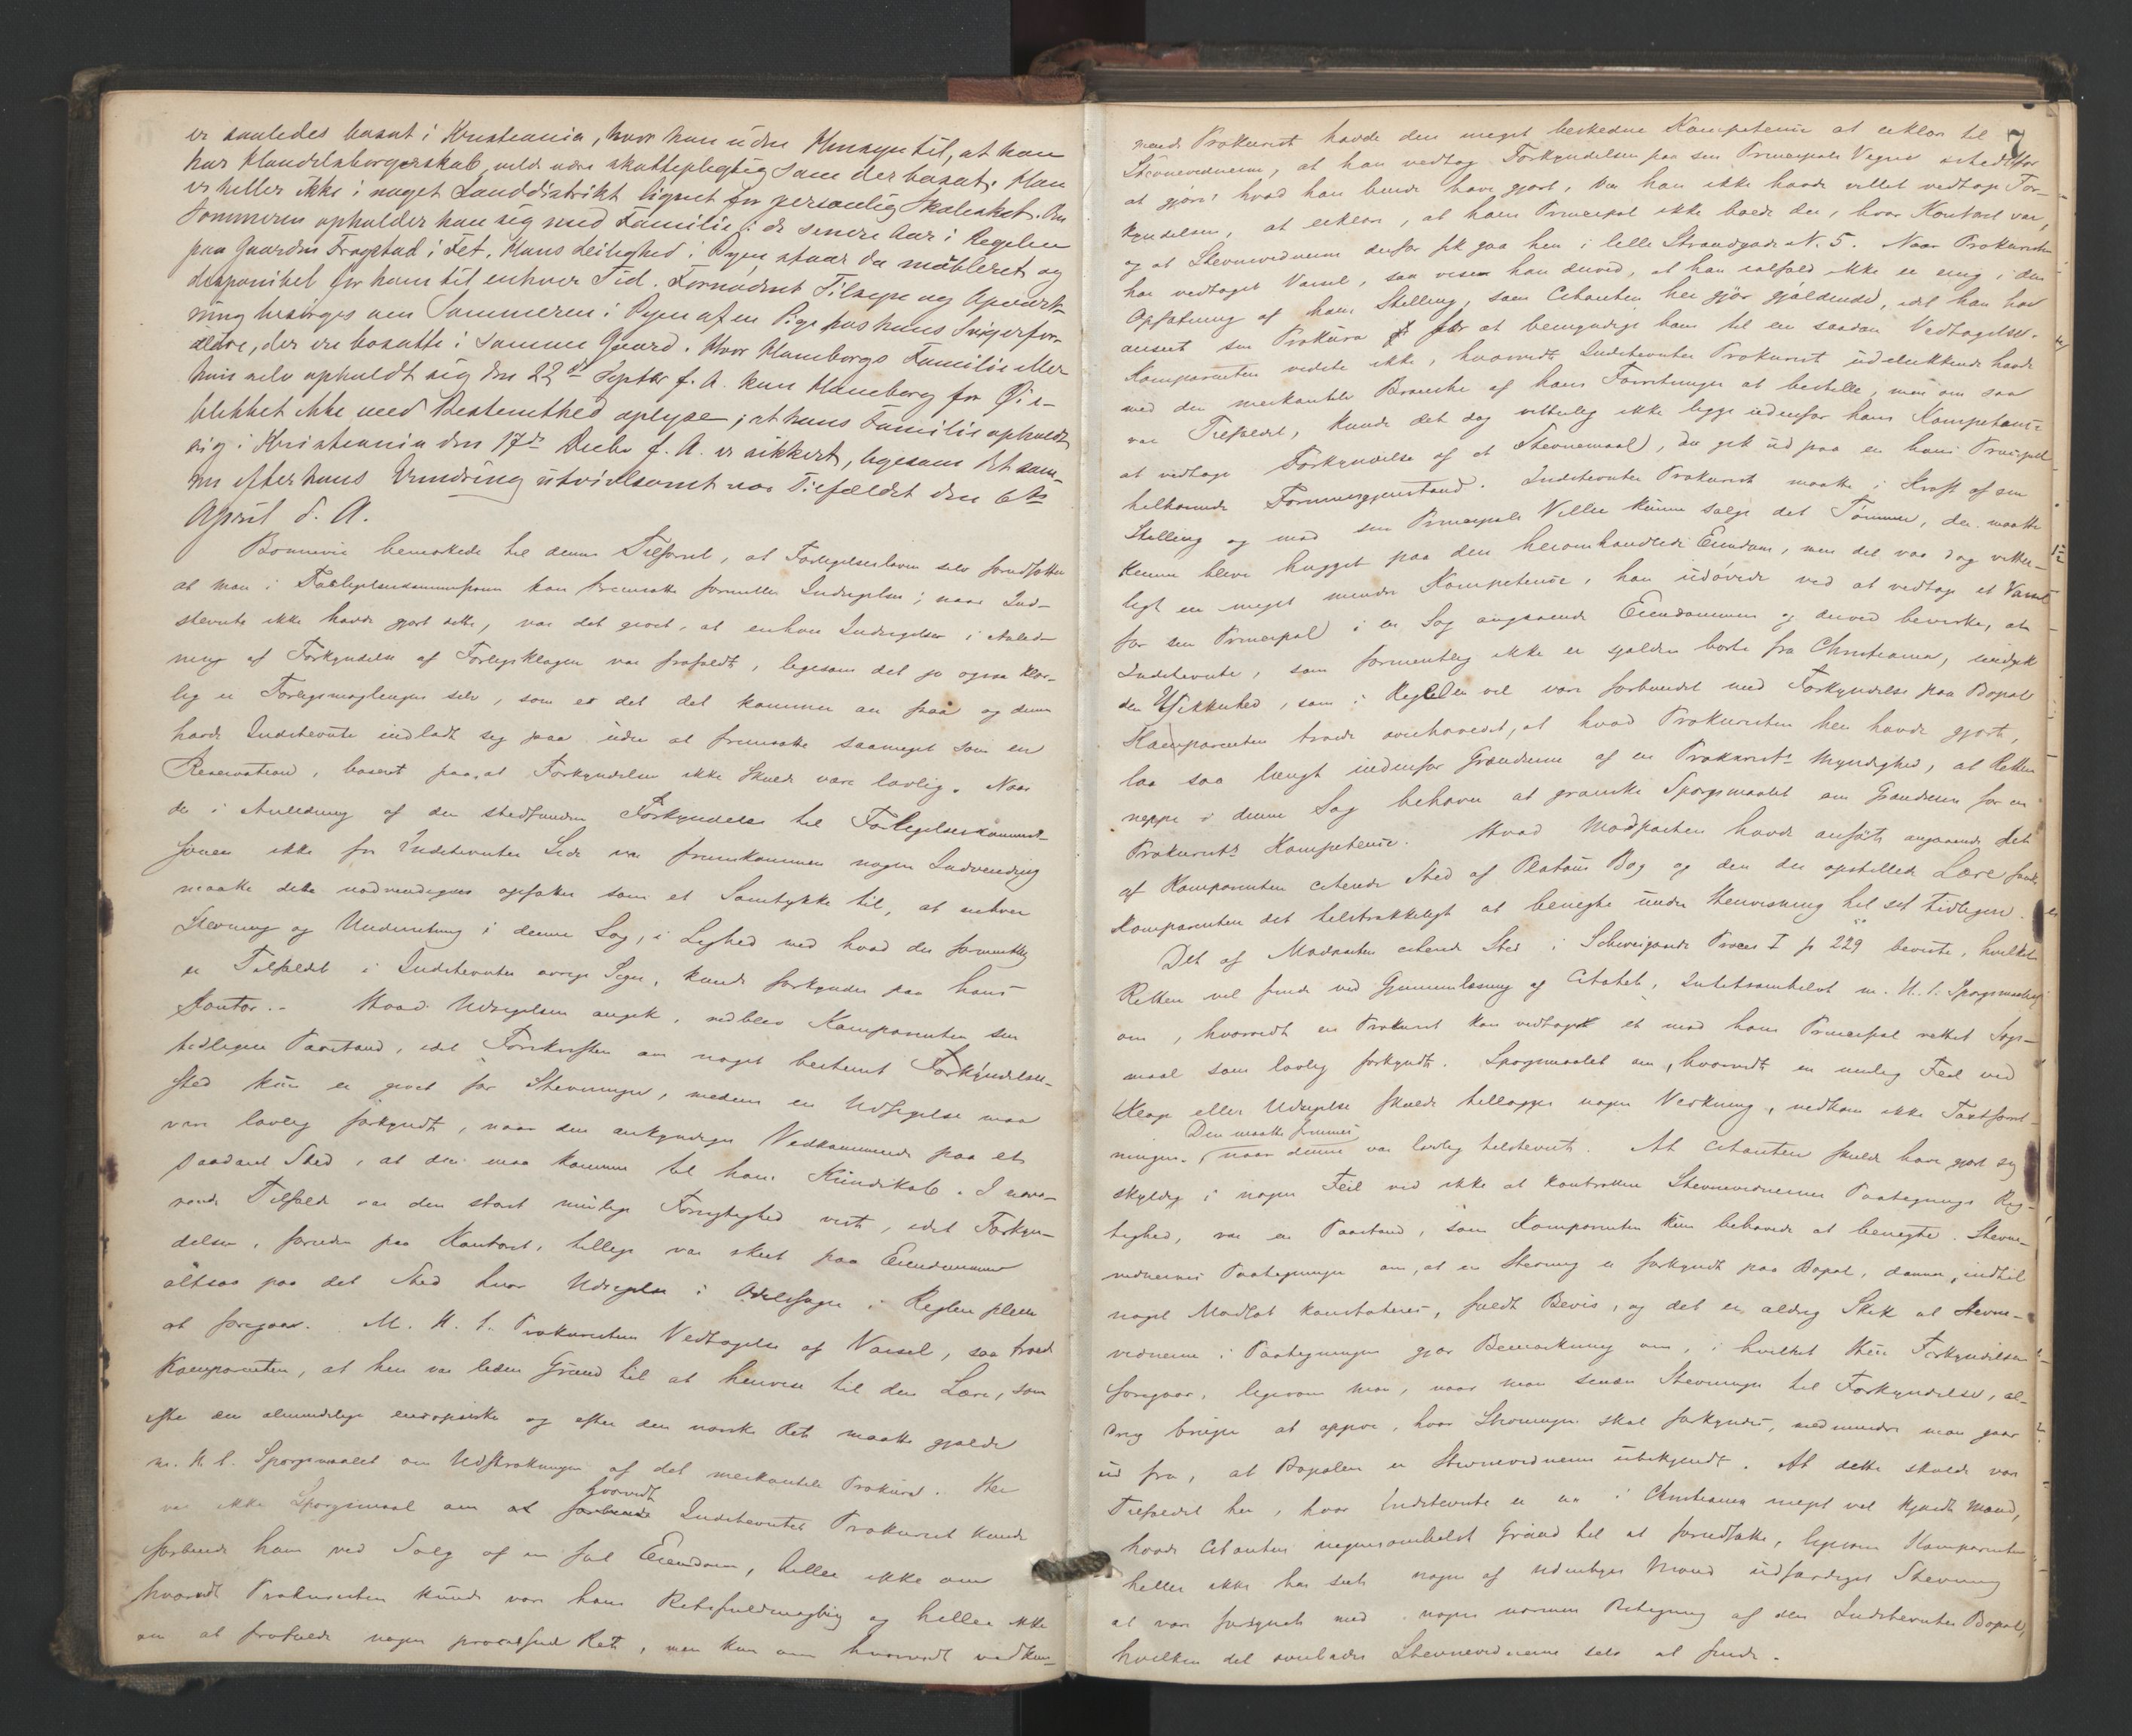 er saaledes bosat i Kristiania, hvor han uden Hensyn til, at han
har Handelsborgerskab, vilde være skattepligtig som der bosat. Han
er heller ikke i noget Landdistrikt lignet for personlig Skatskat. Om
Sommeren opholder han sig med Familie i de senere Aar i Regelen
paa Gaarden Frogstad i Let. Hans Leilighed i Byen staar da møbleret og
disponibel for ham til enhver Tid. Fornødent Tilsyn og Opvart-
ning besørges om Sommeren i Byen af en Pige hos hans Svigerfor-
ældre, der ere bosatte i samme Gaard. Hvor Hambergs Familie eller
han selv opholdt sig den 22de Septbr f. A. kan Hamberg for Øie-
blikket ikke med Bestemthed oplyse; at hans Familie opholdt
sig i Kristiania den 17de Decbr f. A. er sikkert, ligesom det sam-
me efter hans Formening utvivlsomt var Tilfældet den 6te
April d. A.
Bonnevie bemærkede til denne Tilførsel, at Forligelsesloven selv forudsætter
at man i Forligelseskommissionen kan fremsætte formelle Indsigelser; naar Ind-
stevnte ikke havde gjort dette, var det givet, at enhver Indsigelse i Anled-
ning af Forkyndelse af Forligsklagen var frafaldt, ligesom det jo ogsaa klar-
lig er Forligsmæglingen selv, som er det det kommer an paa og denne
havde Indstevnte indladt sig paa uden at fremsætte saameget som en
Reservation, baseret paa, at Forkyndelsen ikke skulde være lovlig. Naar
der i Anledning af den stedfundne Forkyndelse til Forligelseskommis-
sionen ikke fra Indstevntes Side var fremkommen nogen Indvending
maatte dette nødvendigvis opfattes som et Samtykke til, at enhver
Stevning og Underretning i denne Sag, i Lighed med hvad der formentlig
er Tilfældet i Indstevntes øvrige Sager, kunde forkyndes paa hans
Kontor. – Hvad Udsigelsen angik, vedblev Komparenten sin
tidligere Paastand, idet Forskriften om noget bestemt Forkyndelses-
sted kun er givet for Stevninger, medens en Udsigelse maa
være lovlig forkyndt, naar den ankyndiges Vedkommende paa et
saadant Sted, at den maa komme til hans Kundskab. I nærvæ-
rende Tilfælde var den størst mulige Forsigtighed vist, idet Forkyn-
delsen, foruden paa Kontoret, tillige var skeet paa Eiendommen
altsaa paa det Sted hvor Udsigelse i Odelssager i Regelen pleier
at foregaa. M. H. t. Prokuristens Vedtagelse af Varsel, saa troede
Komparenten, at her var liden Grund til at henvise til den Lære, som
efter den almindelige europæiske og efter den norske Ret maatte gjælde
m. H. t. Spørgsmaalet om Udstrækningen af det merkantile Prokura. Her
hvorvidt
var ikke Spørgsmaal om at forbinde Indstevntes Prokurist kunde
forbinde ham ved Salg af en fast Eiendom, heller ikke om
hvorvidt Prokuristen kunde være hans Retsfuldmægtig og heller ikke
om at frafalde nogen processuel Ret, men kun om hvorvidt vedkom-
7
mende Prokurist havde den meget beskedne Kompetence at erklære til
Stevnevidnerne, at han vedtog Forkyndelsen paa sin Principals Vegne istedetfor
at gjøre, hvad han burde have gjort, hvis han ikke havde villet vedtage For-
kyndelsen, at erklære, at hans Principal ikke boede der, hvor Kontoret var,
og at Stevnevidnerne derfor fik gaa hen i lille Strandgade N. 5. Naar Prokuristen
har vedtaget Varsel, saa viser han derved, at han ialfald ikke er enig i den
Opfatning af hans Stilling, som Citanten her gjør gjældende, idet han har
anseet sin Prokura for at bemyndige ham til en saadan Vedtagelse.
Komparenten vidste ikke, hvorvidt Indstevntes Prokurist udelukkende havde
med den merkantile Branche af hans Forretninger at bestille, men om saa
var Tilfældet, kunde det dog vitterlig ikke ligge udenfor hans Kompetence
at vedtage Forkyndelse af et Stevnemaal, der gik ud paa en hans Principal
tilhørende Formuesgjenstand. Indstevntes Prokurist maatte i Kraft af sin
Stilling og med sin Principals Villie kunne sælge det Tømmer, der maatte
kunne blive hugget paa den heromhandlede Eiendom, men det var dog vitter-
ligt en meget mindre Kompetence, han udøvede ved at vedtage et Varsel
for sin Principal i en Sag angaaende Eiendommen og derved bevirke, at
Indstevnte, som formentlig ikke er sjelden borte fra Christiania, undgik
den Usikkerhed, som i Regelen vil være forbundet med Forkyndelse paa Bopæl
Komparenten troede overhovedet, at hvad Prokuristen her havde gjort,
laa saa langt indenfor Grændserne af en Prokurists Myndighed, at Retten
neppe i denne Sag behøver at granske Spørgsmaalet om Grændsen for en
Prokurists Kompetence. Hvad Modparten havde anført angaaende det
af Komparenten citerede Sted af Platous Bog og den der opstillede Lære fandt
Komparenten det tilstrækkeligt at benegte under Henvisning til sit Tidligere.
Det af Modparten citerede Sted i Schweigaards Proces I p 229 beviste, hvilket
Retten vil finde ved Gjennemlæsning af Citatet, Intetsomhelst m. H. t. Spørgsmaalet
om, hvorvidt en Prokurist kan vedtage et mod hans Principal rettet Søgs-
maal som lovlig forkyndt. Spørgsmaalet om, hvorvidt en mulig Feil ved
Klage eller Udsigelse skulde tillægges nogen Virkning, vedkom ikke Taxtforret-
Den maatte fremmes
ningen, naar denne var lovlig tilstevnt. At Citanten skulde have gjort sig
skyldig i nogen Feil ved ikke at kontrollere Stevnevidnernes Paategnings Rig-
tighed, var en Paastand, som Komparenten kun behøvede at benegte. Stevne-
vidnernes Paategninger om, at en Stevning er forkyndt paa Bopæl, danner, indtil
noget Modsat konstateres, fuldt Bevis, og det er aldrig Skik at Stevne-
vidnerne i Paategningen gjør Bemærkning om, i hvilket Hus Forkyndelsen
foregaar, ligesom man, naar man sender Stevninger til Forkyndelse, al-
drig bruger at opgive, hvor Stevningen skal forkyndes, medmindre man gaar
ud fra, at Bopælen er Stevnevidnerne ubekjendt. At dette skulde være
Tilfældet her, hvor Indstevnte er en i Christiania meget vel kjendt Mand,
havde Citanten ingensomhelst Grund til at forudsætte, ligesom Komparenten
heller ikke har seet nogen af udenbyes Mand udfærdiget Stevning
at være forsynet med nogen nærmere Betegning af den Indstevntes Bopæl,
hvilken det overlades Stevnevidnerne selv at finde.